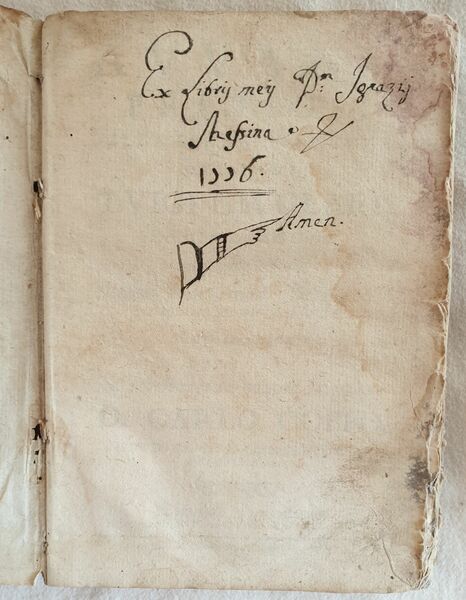 Ex Librij meij Dn: Ignazij
Messina
1776.
Amen.